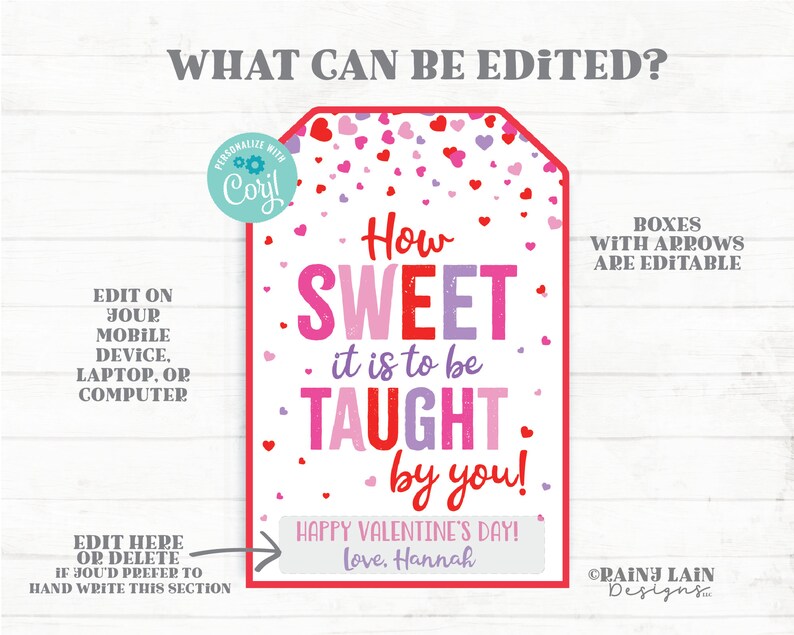 WHAT CAN BE EDITED?
PERSONALIZE WITH
Corjl
How
SWEET
it is to be
TAUGHT
by you!
HAPPY VALENTINE'S DAY!
Love, Hannah
BOXES
WITH ARROWS
ARE EDITABLE
EDIT ON
YOUR
MOBILE
DEVICE,
LAPTOP, OR
COMPUTER
EDIT HERE
OR DELETE
IF YOU'D PREFER TO
HAND WRITE THIS SECTION
©RAINY LAIN
Designs LLC